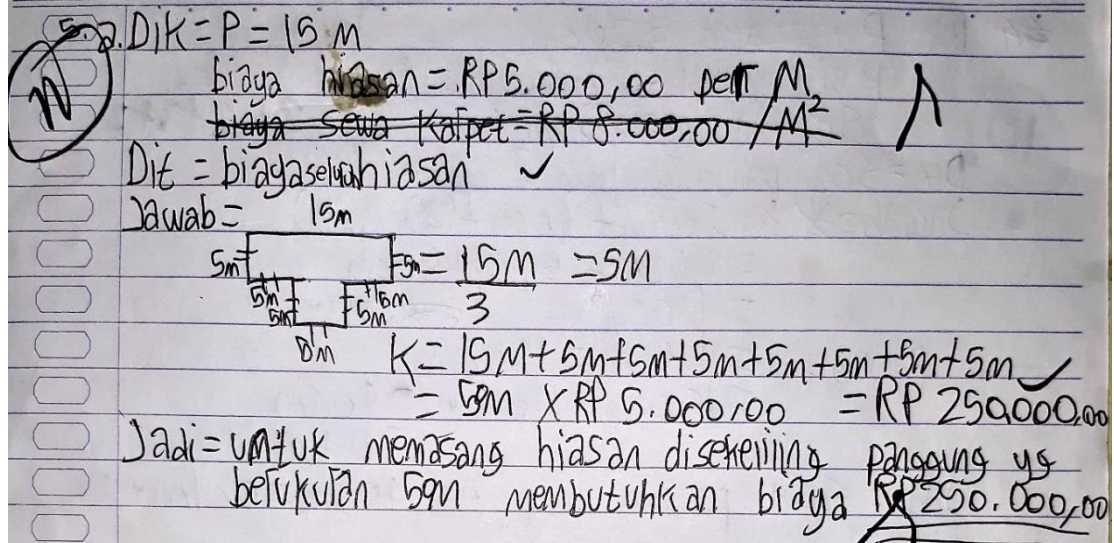 5. a. Dik = P = 15 M
biaya hiasan = RP 5.000,00 per M
biaya sewa karpet = RP 8.000,00 / M²
Dit = biaya seluruh hiasan ✓
Jawab = 15m
5m 5m = 15M / 3 = 5M
5m 5m
5m 5m
5m
K = 15M + 5m + 5m + 5m + 5m + 5m + 5m + 5m ✓
= 50M X RP 5.000,00 = RP 250.000,00
Jadi = untuk memasang hiasan disekeliling panggung yg
berukuran 50m membutuhkan biaya RP 250.000,00